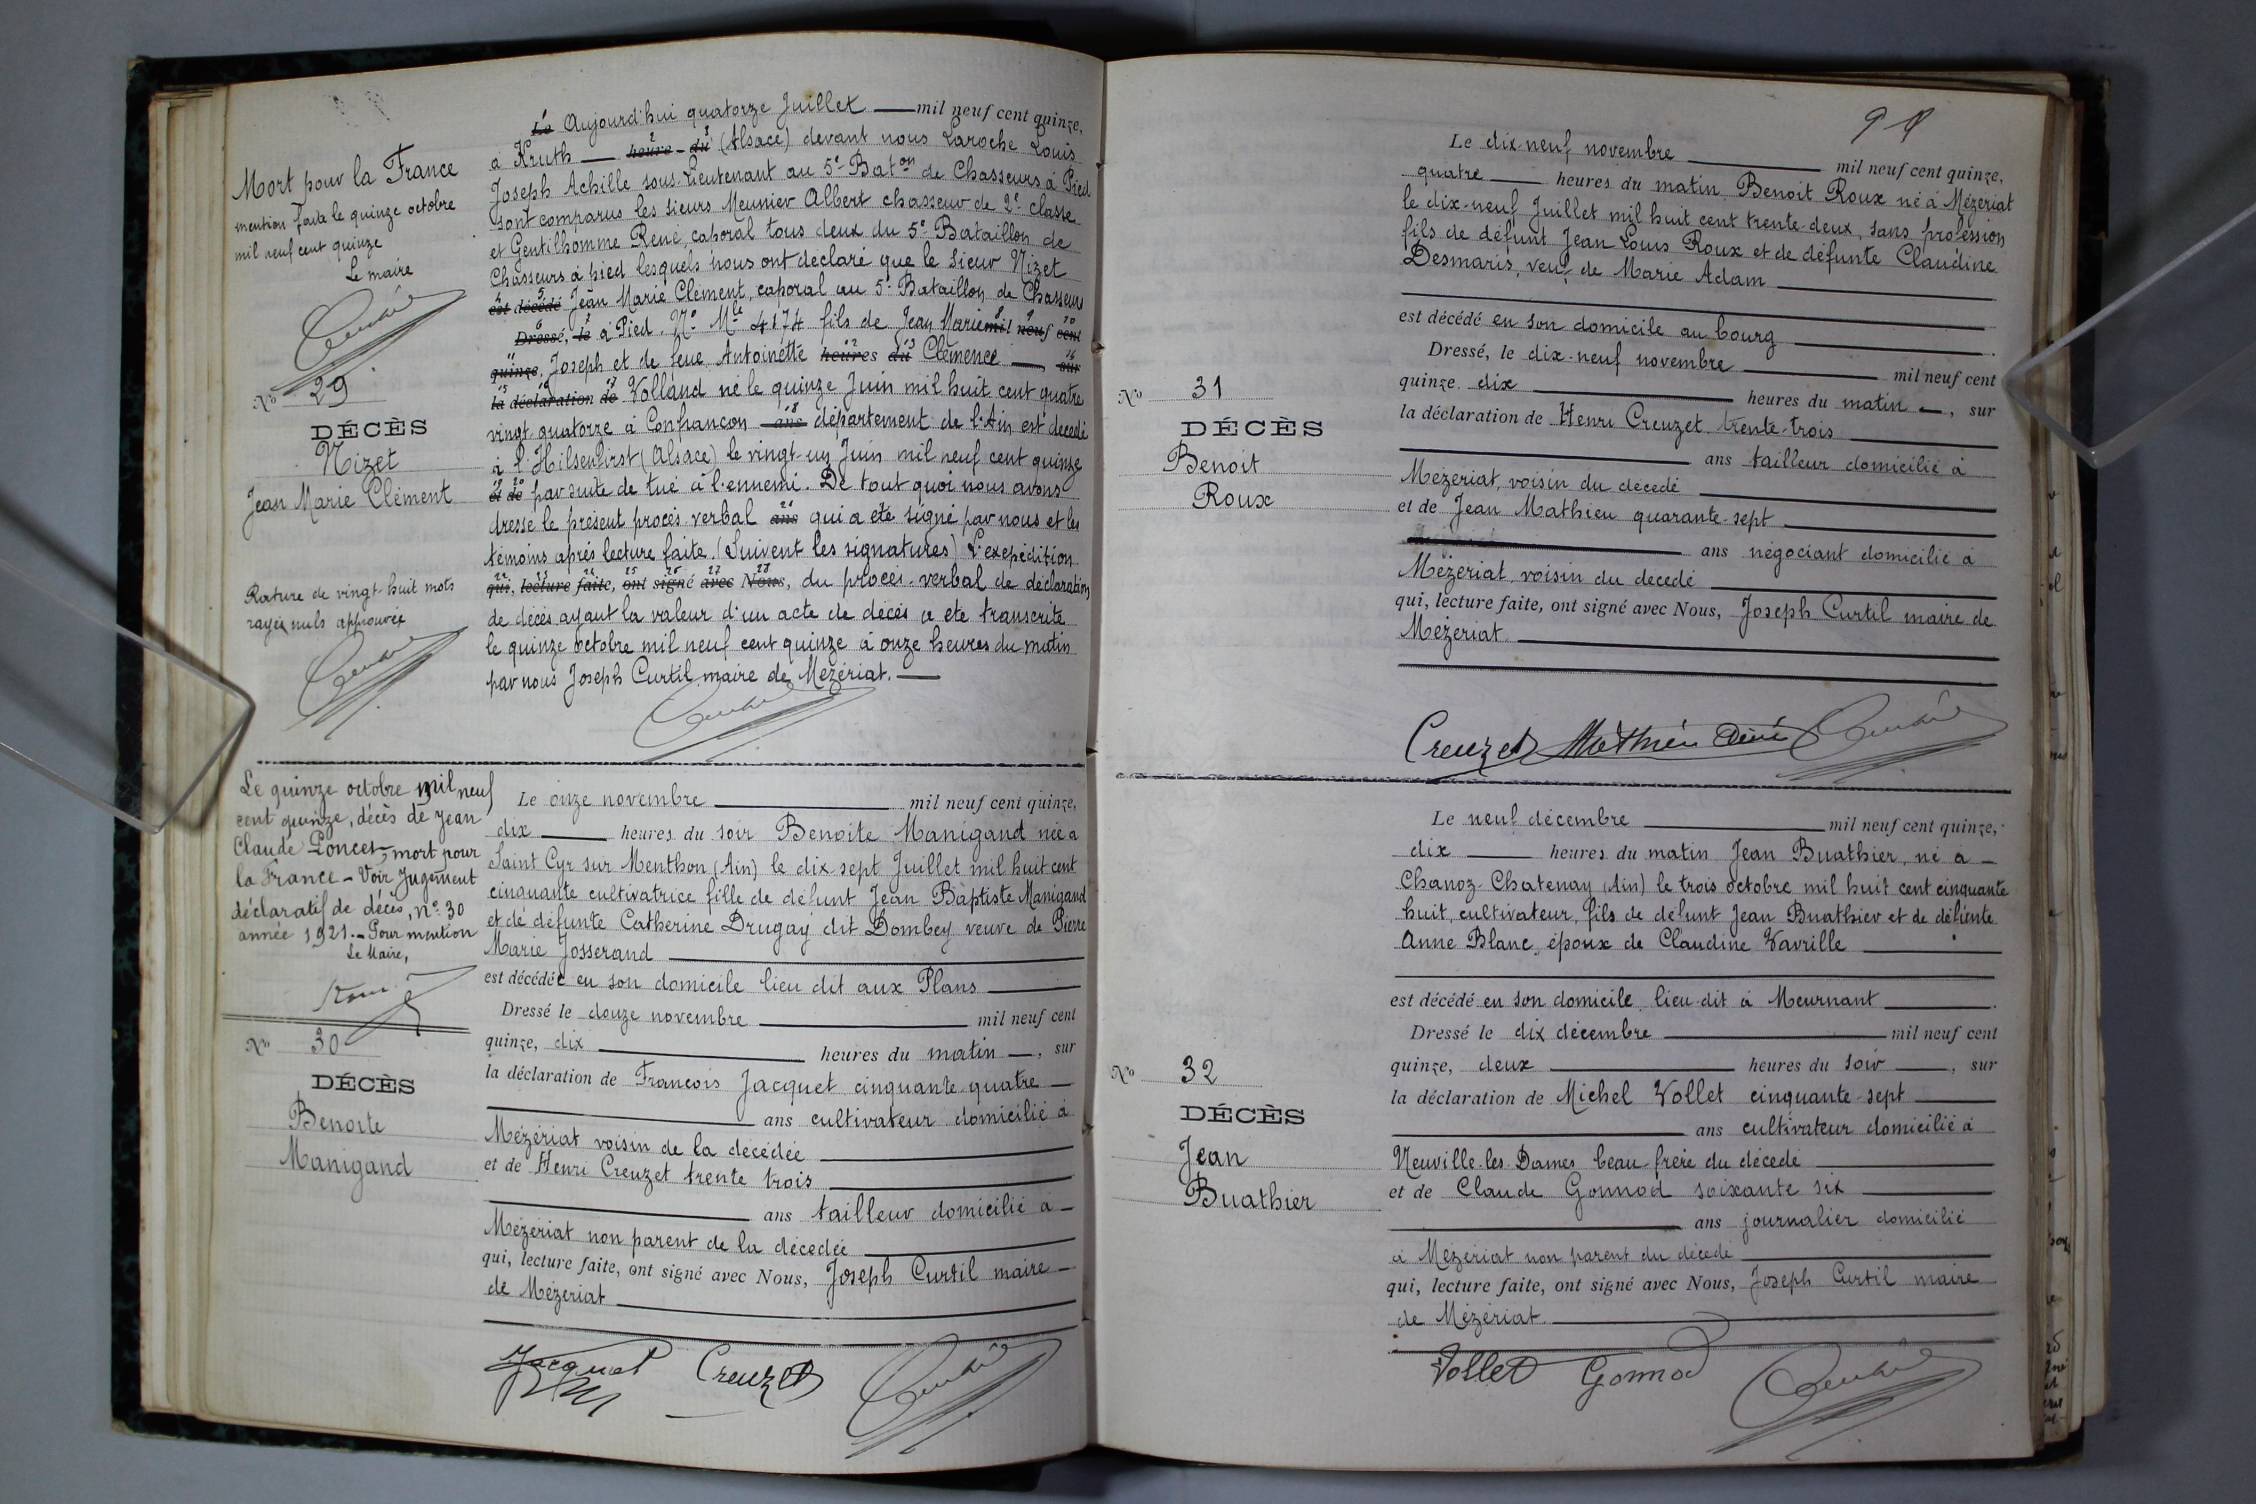 Mort pour la France
mention faite le quinze octobre
mil neuf cent quinze
Le maire
No 29
DÉCÈS
Nizet
Jean Marie Clément
Rature de vingt-huit mots
rayés nuls approuvée
Le Aujourd'hui quatorze Juillet — mil neuf cent quinze,
à Kruth — heure du (Alsace) devant nous Laroche Louis
Joseph Achille sous-Lieutenant au 5e Baton de Chasseurs à Pied
sont comparus les sieurs Meunier Albert chasseur de 2e classe
et Gentilhomme René, caporal tous deux du 5e Bataillon de
Chasseurs à pied lesquels nous ont déclaré que le sieur Nizet
est décédé Jean Marie Clément, caporal au 5e Bataillon de Chasseurs
Dressé, le à Pied. No Mle 4174 fils de Jean Marie mil neuf cent
quinze, Joseph et de feue Antoinette heures du Clémence — sur
la déclaration de Volland né le quinze Juin mil huit cent quatre
vingt quatorze à Confrançon ans département de l'Ain est décédé
à l'Hilsenfirst (Alsace) le vingt-un Juin mil neuf cent quinze
et de par suite de tué à l'ennemi. De tout quoi nous avons
dressé le présent procès-verbal ans qui a été signé par nous et les
témoins après lecture faite. (Suivent les signatures) L'exepédition
qui, lecture faite, ont signé avec Nous, du procès-verbal de déclaration
de décès ayant la valeur d'un acte de décès a été transcrite
le quinze octobre mil neuf cent quinze à onze heures du matin
par nous Joseph Curtil maire de Mézériat. —
Le quinze octobre mil neuf
cent quinze, décès de Jean
Claude Poncet, mort pour
la France - Voir Jugement
déclaratif de décès, no 30
année 1921. - Pour mention
Le Maire,
No 30
DÉCÈS
Benoite
Manigand
Le onze novembre — mil neuf cent quinze,
dix — heures du soir Benoite Manigand née à
Saint Cyr sur Menthon (Ain) le dix sept Juillet mil huit cent
cinquante cultivatrice fille de défunt Jean Baptiste Manigand
et de défunte Catherine Drugay dit Dombey veuve de Pierre
Marie Josserand
est décédée en son domicile lieu dit aux Plans
Dressé le douze novembre — mil neuf cent
quinze, dix — heures du matin —, sur
la déclaration de François Jacquet cinquante-quatre —
ans cultivateur domicilié à
Mézériat voisin de la décédée
et de Henri Creuzet trente trois
ans tailleur domicilié à —
Mézériat non parent de la décédée
qui, lecture faite, ont signé avec Nous, Joseph Curtil maire —
de Mézériat
Jacquet Creuzet
Le dix-neuf novembre — mil neuf cent quinze,
quatre — heures du matin Benoit Roux né à Mézériat
le dix-neuf Juillet mil huit cent trente-deux, sans profession
fils de défunt Jean Louis Roux et de défunte Claudine
Desmaris, veuf de Marie Adam
est décédé en son domicile au bourg
Dressé, le dix-neuf novembre — mil neuf cent
quinze, dix — heures du matin —, sur
la déclaration de Henri Creuzet trente-trois
ans tailleur domicilié à
Mézériat, voisin du décédé
et de Jean Mathieu quarante-sept
ans négociant domicilié à
Mézériat voisin du décédé
qui, lecture faite, ont signé avec Nous, Joseph Curtil maire de
Mézériat
Creuzet Mathieu
No 31
DÉCÈS
Benoit
Roux
Le neuf décembre — mil neuf cent quinze,
dix — heures du matin Jean Buathier, né à —
Chanoz-Chatenay (Ain) le trois octobre mil huit cent cinquante
huit, cultivateur, fils de défunt Jean Buathier et de défunte
Anne Blanc, époux de Claudine Vavrille
est décédé en son domicile lieu-dit à Meurnant
Dressé le dix décembre — mil neuf cent
quinze, deux — heures du soir —, sur
la déclaration de Michel Vollet cinquante-sept
ans cultivateur domicilié à
Neuville-les-Dames beau-frère du décédé
et de Claude Gonnod soixante six
ans journalier domicilié
à Mézériat non parent du décédé
qui, lecture faite, ont signé avec Nous, Joseph Curtil maire
de Mézériat.
Vollet Gonnod
No 32
DÉCÈS
Jean
Buathier